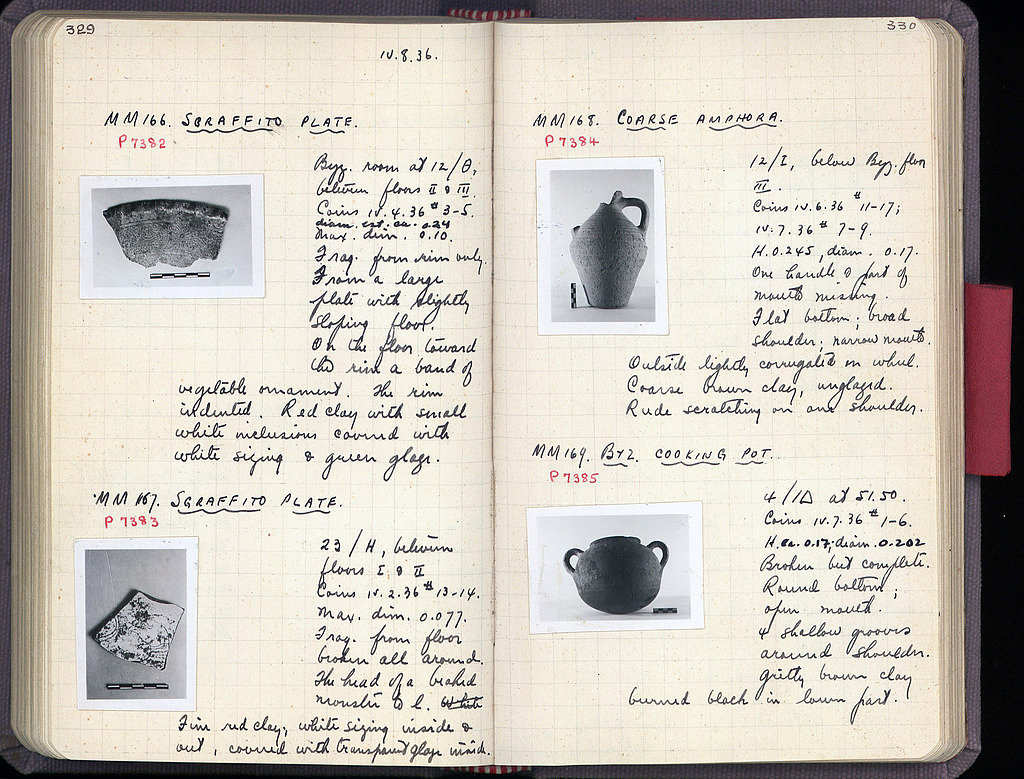 329
IV.8.36.
MM166. SGRAFFITO PLATE.
P 7382
Byz. room at 12/Θ,
between floors II & III
Coins IV.4.36 # 3-5.
diam. est. ca. 0.24
Max. dim. 0.10.
Frag. from rim only.
From a large
plate with slightly
sloping floor.
On the floor toward
the rim a band of
vegetable ornament. The rim
indented. Red clay with small
white inclusions covered with
white sizing & green glaze.
MM 167. SGRAFFITO PLATE.
P 7383
23/H, between
floors I & II
Coins IV.2.36 # 13-14.
Max. dim. 0.077.
Frag. from floor
broken all around.
The head of a beaked
monster to l. White
Fine red clay; white sizing inside &
out, covered with transparent glaze inside.
330
MM168. COARSE AMPHORA.
P 7384
12/I, below Byz. floor
III.
Coins IV.6.36 # 11-17;
IV.7.36 # 7-9.
H. 0.245, diam. 0.17.
One handle & part of
mouth missing.
Flat bottom; broad
shoulder; narrow mouth.
Outside lightly corrugated on wheel.
Coarse brown clay, unglazed.
Rude scratching on one shoulder.
MM169. BYZ. COOKING POT.
P 7385
4/ΙΔ at 51.50.
Coins IV.7.36 # 1-6.
H. ca. 0.17; diam. 0.202
Broken but complete.
Round bottom;
open mouth.
4 shallow grooves
around shoulder.
gritty brown clay
burned black in lower part.